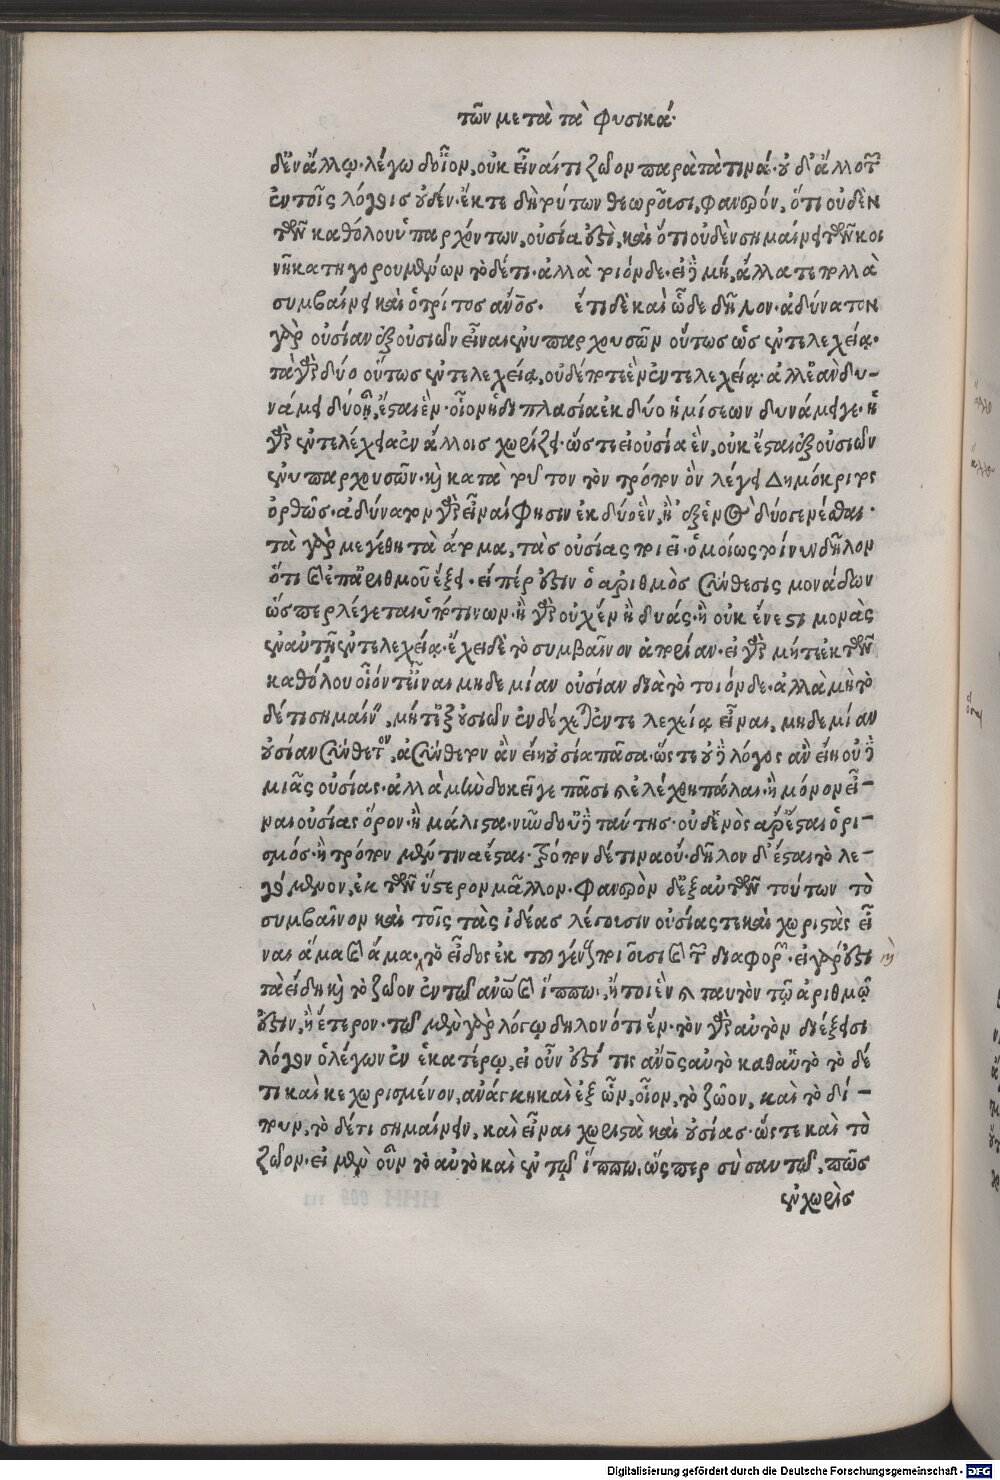 τῶν μετὰ τὰ φυσικά.
δ' ἐν ἄλλῳ. λέγω δ' οἷον, οὐκ εἶναί τι ζῷον παρὰ τὰ τινά. οὐδ' ἄλλο τῶν
ἐν τοῖς λόγοις οὐδέν. ἔκ τε δὴ τούτων θεωροῦσι, φανερόν, ὅτι οὐδὲν
τῶν καθόλου ὑπαρχόντων, οὐσία ἐστὶ, καὶ ὅτι οὐδὲν σημαίνει τῶν κοι
νῇ κατηγορουμένων τὸ δέ τι. ἀλλὰ τοιόνδε. εἰ δὲ μή, ἄλλα τε πολλὰ
συμβαίνει καὶ ὁ τρίτος ἄνος. ἔτι δὲ καὶ ὧδε δῆλον. ἀδύνατον
γὰρ οὐσίαν ἐξ οὐσιῶν εἶναι ἐνυπαρχουσῶν οὕτως ὡς ἐντελεχείᾳ.
τὰ γὰρ δύο οὕτως ἐντελεχείᾳ, οὐδέποτε ἓν ἐντελεχείᾳ. ἀλλ' ἐὰν δυ-
νάμει δύο ᾖ, ἔσται ἕν. οἷον ἡ διπλασία ἐκ δύο ἡμίσεων δυνάμει γε. ἡ
γὰρ ἐντελέχεια ἐν ἄλλοις χωρίζει. ὥστε εἰ οὐσία ἓν, οὐκ ἔσται ἐξ οὐσιῶν
ἐνυπαρχουσῶν. καὶ κατὰ τοῦτον τὸν τρόπον ὃν λέγει Δημόκριτος
ὀρθῶς. ἀδύνατον γὰρ εἶναί φησιν ἐκ δύο ἓν, ἢ ἐξ ἑνὸς δύο γενέσθαι.
τὰ γὰρ μεγέθη τὰ ἄτομα, τὰς οὐσίας ποιεῖ. ὁμοίως τοίνυν δῆλον
ὅτι καὶ ἐπ' ἀριθμοῦ ἕξει. εἴπερ ἐστὶν ὁ ἀριθμὸς σύνθεσις μονάδων
ὥσπερ λέγεται ὑπό τινων. ἢ γὰρ οὐχ ἓν ἡ δυάς. ἢ οὐκ ἔνεστι μονὰς
ἐν αὐτῇ ἐντελεχείᾳ. ἔχει δὲ τὸ συμβαῖνον ἀπορίαν. εἰ γὰρ μήτε ἐκ τῶν
καθόλου οἷόν τ' εἶναι μηδεμίαν οὐσίαν διὰ τὸ τοιόνδε. ἀλλὰ μὴ τὸ
δέ τι σημαίνειν, μήτ' ἐξ οὐσιῶν ἐνδέχεται ἐντελεχείᾳ εἶναι, μηδεμίαν
οὐσίαν σύνθετον, ἀσύνθετον ἂν εἴη οὐσία πᾶσα. ὥστε οὐδὲ λόγος ἂν εἴη οὐδὲ
μιᾶς οὐσίας. ἀλλὰ μὴν δοκεῖ γε πᾶσι καὶ ἐλέχθη πάλαι. ἢ μόνον εἶ-
ναι οὐσίας ὅρον. ἢ μάλιστα. νῦν δ' οὐδὲ ταύτης. οὐδενὸς ἄρ' ἔσται ὁρι-
σμός. ἢ τρόπον μέν τινα ἔσται. τρόπον δέ τινα οὔ. δῆλον δ' ἔσται τὸ λε-
γόμενον, ἐκ τῶν ὕστερον μᾶλλον. φανερὸν δ' ἐξ αὐτῶν τούτων τὸ
συμβαῖνον καὶ τοῖς τὰς ἰδέας λέγουσιν οὐσίας τε καὶ χωριστὰς εἶ
ναι ἅμα καὶ ἅμα. τὸ εἶδος ἐκ τοῦ γένους ποιοῦσι καὶ τῶν διαφορῶν. εἰ γὰρ ἔστι
τὰ εἴδη καὶ τὸ ζῷον ἐν τῷ ἀνῶ καὶ ἵππῳ, ἤτοι ἓν καὶ ταυτὸν τῷ ἀριθμῷ
ἐστιν, ἢ ἕτερον. τῷ μὲν γὰρ λόγῳ δηλονότι ἕν. τὸν γὰρ αὐτὸν διέξεισι
λόγον ὁ λέγων ἐν ἑκατέρῳ, εἰ οὖν ἐστί τις ἄνος αὐτὸ καθ' αὑτὸ τὸ δέ
τι καὶ κεχωρισμένον, ἀνάγκη καὶ ἐξ ὧν, οἷον, τὸ ζῶον, καὶ τὸ δί-
πουν, τὸ δέ τι σημαίνειν, καὶ εἶναι χωριστὰ καὶ οὐσίας. ὥστε καὶ τὸ
ζῷον. εἰ μὲν οὖν τὸ αὐτὸ καὶ ἐν τῷ ἵππῳ, ὥσπερ σὺ σαυτῷ, πῶς
ἐν χωρὶς
Digitalisierung gefördert durch die Deutsche Forschungsgemeinschaft - DFG